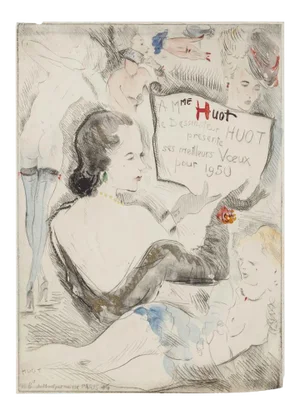 A Mme Huot
HUOT
présente
ses meilleurs Voeux
pour 1950